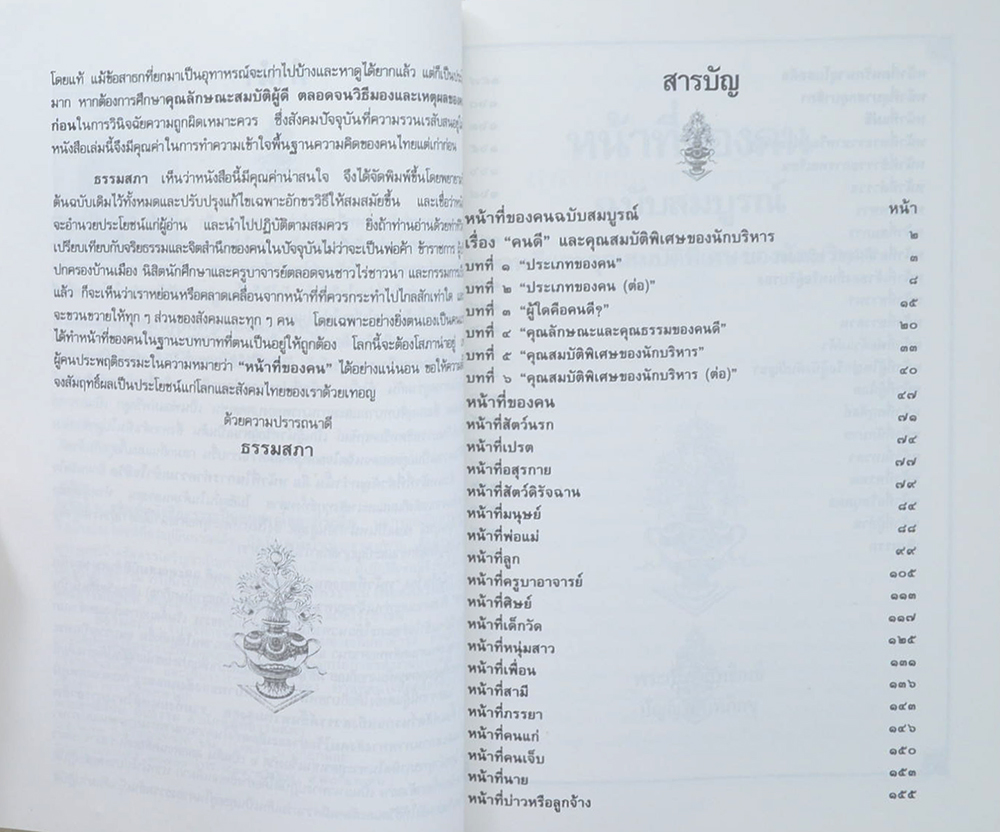 โดยแท้ แม้ข้อสาธกที่ยกมาเป็นอุทาหรณ์จะเก่าไปบ้างและหาดูได้ยากแล้ว แต่ก็เป็น
มาก หากต้องการศึกษาคุณลักษณะสมบัติผู้ดี ตลอดจนวิธีมองและเหตุผล
ก่อนในการวินิจฉัยความถูกผิดเหมาะควร ซึ่งสังคมปัจจุบันที่ความรวนเรสับสน
หนังสือเล่มนี้จึงมีคุณค่าในการทำความเข้าใจพื้นฐานความคิดของคนไทยแต่เก่าก่อน
ธรรมสภา เห็นว่าหนังสือนี้มีคุณค่าน่าสนใจ จึงได้จัดพิมพ์ขึ้นโดย
ต้นฉบับเดิมไว้ทั้งหมดและปรับปรุงแก้ไขเฉพาะอักขรวิธีให้สมสมัยขึ้น และเชื่อว่า
จะอำนวยประโยชน์แก่ผู้อ่าน และนำไปปฏิบัติตามสมควร ยิ่งถ้าท่านอ่านด้วย
เปรียบเทียบกับจริยธรรมและจิตสำนึกของคนในปัจจุบันไม่ว่าจะเป็นพ่อค้า ข้าราชการ
ปกครองบ้านเมือง นิสิตนักศึกษาและครูบาจารย์ตลอดจนชาวไร่ชาวนา และกรรมการ
แล้ว ก็จะเห็นว่าเราหย่อนหรือคลาดเคลื่อนจากหน้าที่ที่ควรกระทำไปไกลสักเท่าใด
จะขวนขวายให้ทุก ๆ ส่วนของสังคมและทุก ๆ คน โดยเฉพาะอย่างยิ่งตนเองเป็น
ได้ทำหน้าที่ของคนในฐานะบทบาทที่ตนเป็นอยู่ให้ถูกต้อง โลกนี้จะต้องโสภาน่าอยู่
ผู้คนประพฤติธรรมะในความหมายว่า "หน้าที่ของคน" ได้อย่างแน่นอน ขอให้
จงสัมฤทธิ์ผลเป็นประโยชน์แก่โลกและสังคมไทยของเราด้วยเทอญ
ด้วยความปรารถนาดี
ธรรมสภา
สารบัญ
หน้าที่ของคนฉบับสมบูรณ์ หน้า
เรื่อง "คนดี" และคุณสมบัติพิเศษของนักบริหาร ๒
บทที่ ๑ "ประเภทของคน" ๓
บทที่ ๒ "ประเภทของคน (ต่อ)" ๘
บทที่ ๓ "ผู้ใดคือคนดี?" ๑๕
บทที่ ๔ "คุณลักษณะและคุณธรรมของคนดี" ๒๐
บทที่ ๕ "คุณสมบัติพิเศษของนักบริหาร" ๓๓
บทที่ ๖ "คุณสมบัติพิเศษของนักบริหาร (ต่อ)" ๔๐
หน้าที่ของคน ๔๗
หน้าที่สัตว์นรก ๗๑
หน้าที่เปรต ๗๔
หน้าที่อสุรกาย ๗๗
หน้าที่สัตว์ดิรัจฉาน ๗๙
หน้าที่มนุษย์ ๘๔
หน้าที่พ่อแม่ ๘๘
หน้าที่ลูก ๙๙
หน้าที่ครูบาอาจารย์ ๑๐๕
หน้าที่ศิษย์ ๑๑๓
หน้าที่เด็กวัด ๑๑๗
หน้าที่หนุ่มสาว ๑๒๕
หน้าที่เพื่อน ๑๓๑
หน้าที่สามี ๑๓๖
หน้าที่ภรรยา ๑๔๓
หน้าที่คนแก่ ๑๔๖
หน้าที่คนเจ็บ ๑๕๐
หน้าที่นาย ๑๕๓
หน้าที่บ่าวหรือลูกจ้าง ๑๕๕